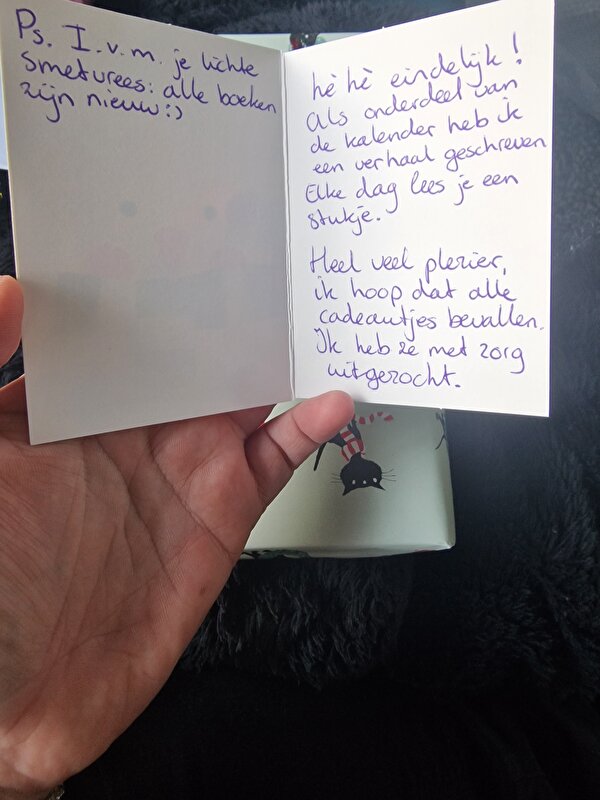 Ps. I.v.m. je lichte
smetvrees: alle boeken
zijn nieuw :)
hè hè eindelijk!
Als onderdeel van
de kalender heb ik
een verhaal geschreven
Elke dag lees je een
stukje.
Heel veel plezier,
ik hoop dat alle
cadeautjes bevallen.
Ik heb ze met zorg
uitgezocht.